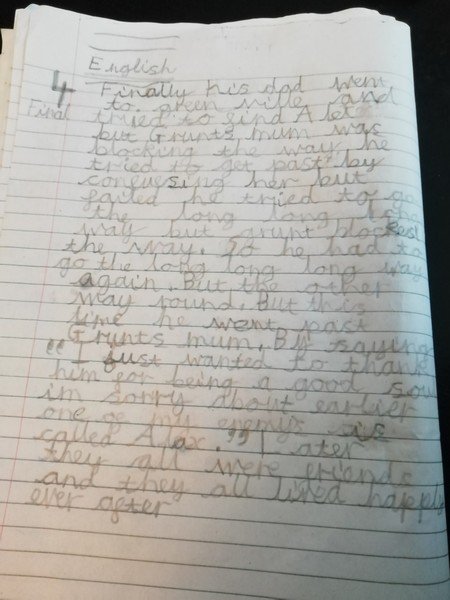 English
4 Finally his dad went
Final to green ville and
tried to find Alex
but Grunts mum was
blocking the way he
tried to get past by
confusing her but
failed he tried to go
the long long long
way but grunt blocked
the way. So he had to
go the long long long way
again. But the other
way round. But this
time he went past
Grunts mum. By saying
"I just wanted to thank
him for being a good
im sorry about earlier
one of my enemys is
called Alax." Later
they all were friends
and they all lived happly
ever after